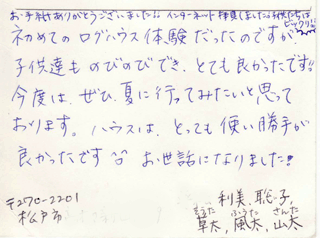 お手紙ありがとうございました!! インターネット拝見しました。子供たちは
ビックリ!!
初めてのログハウス体験だったのですが、
子供達ものびのびでき、とても良かったです!!
今度は、ぜひ夏に行ってみたいと思って
おります。ハウスは、とっても使い勝手が
良かったです^^ お世話になりました!
〒270-2201
松戸市
利美、聡子、
そうた ふうた さんた
草太、風太、山太